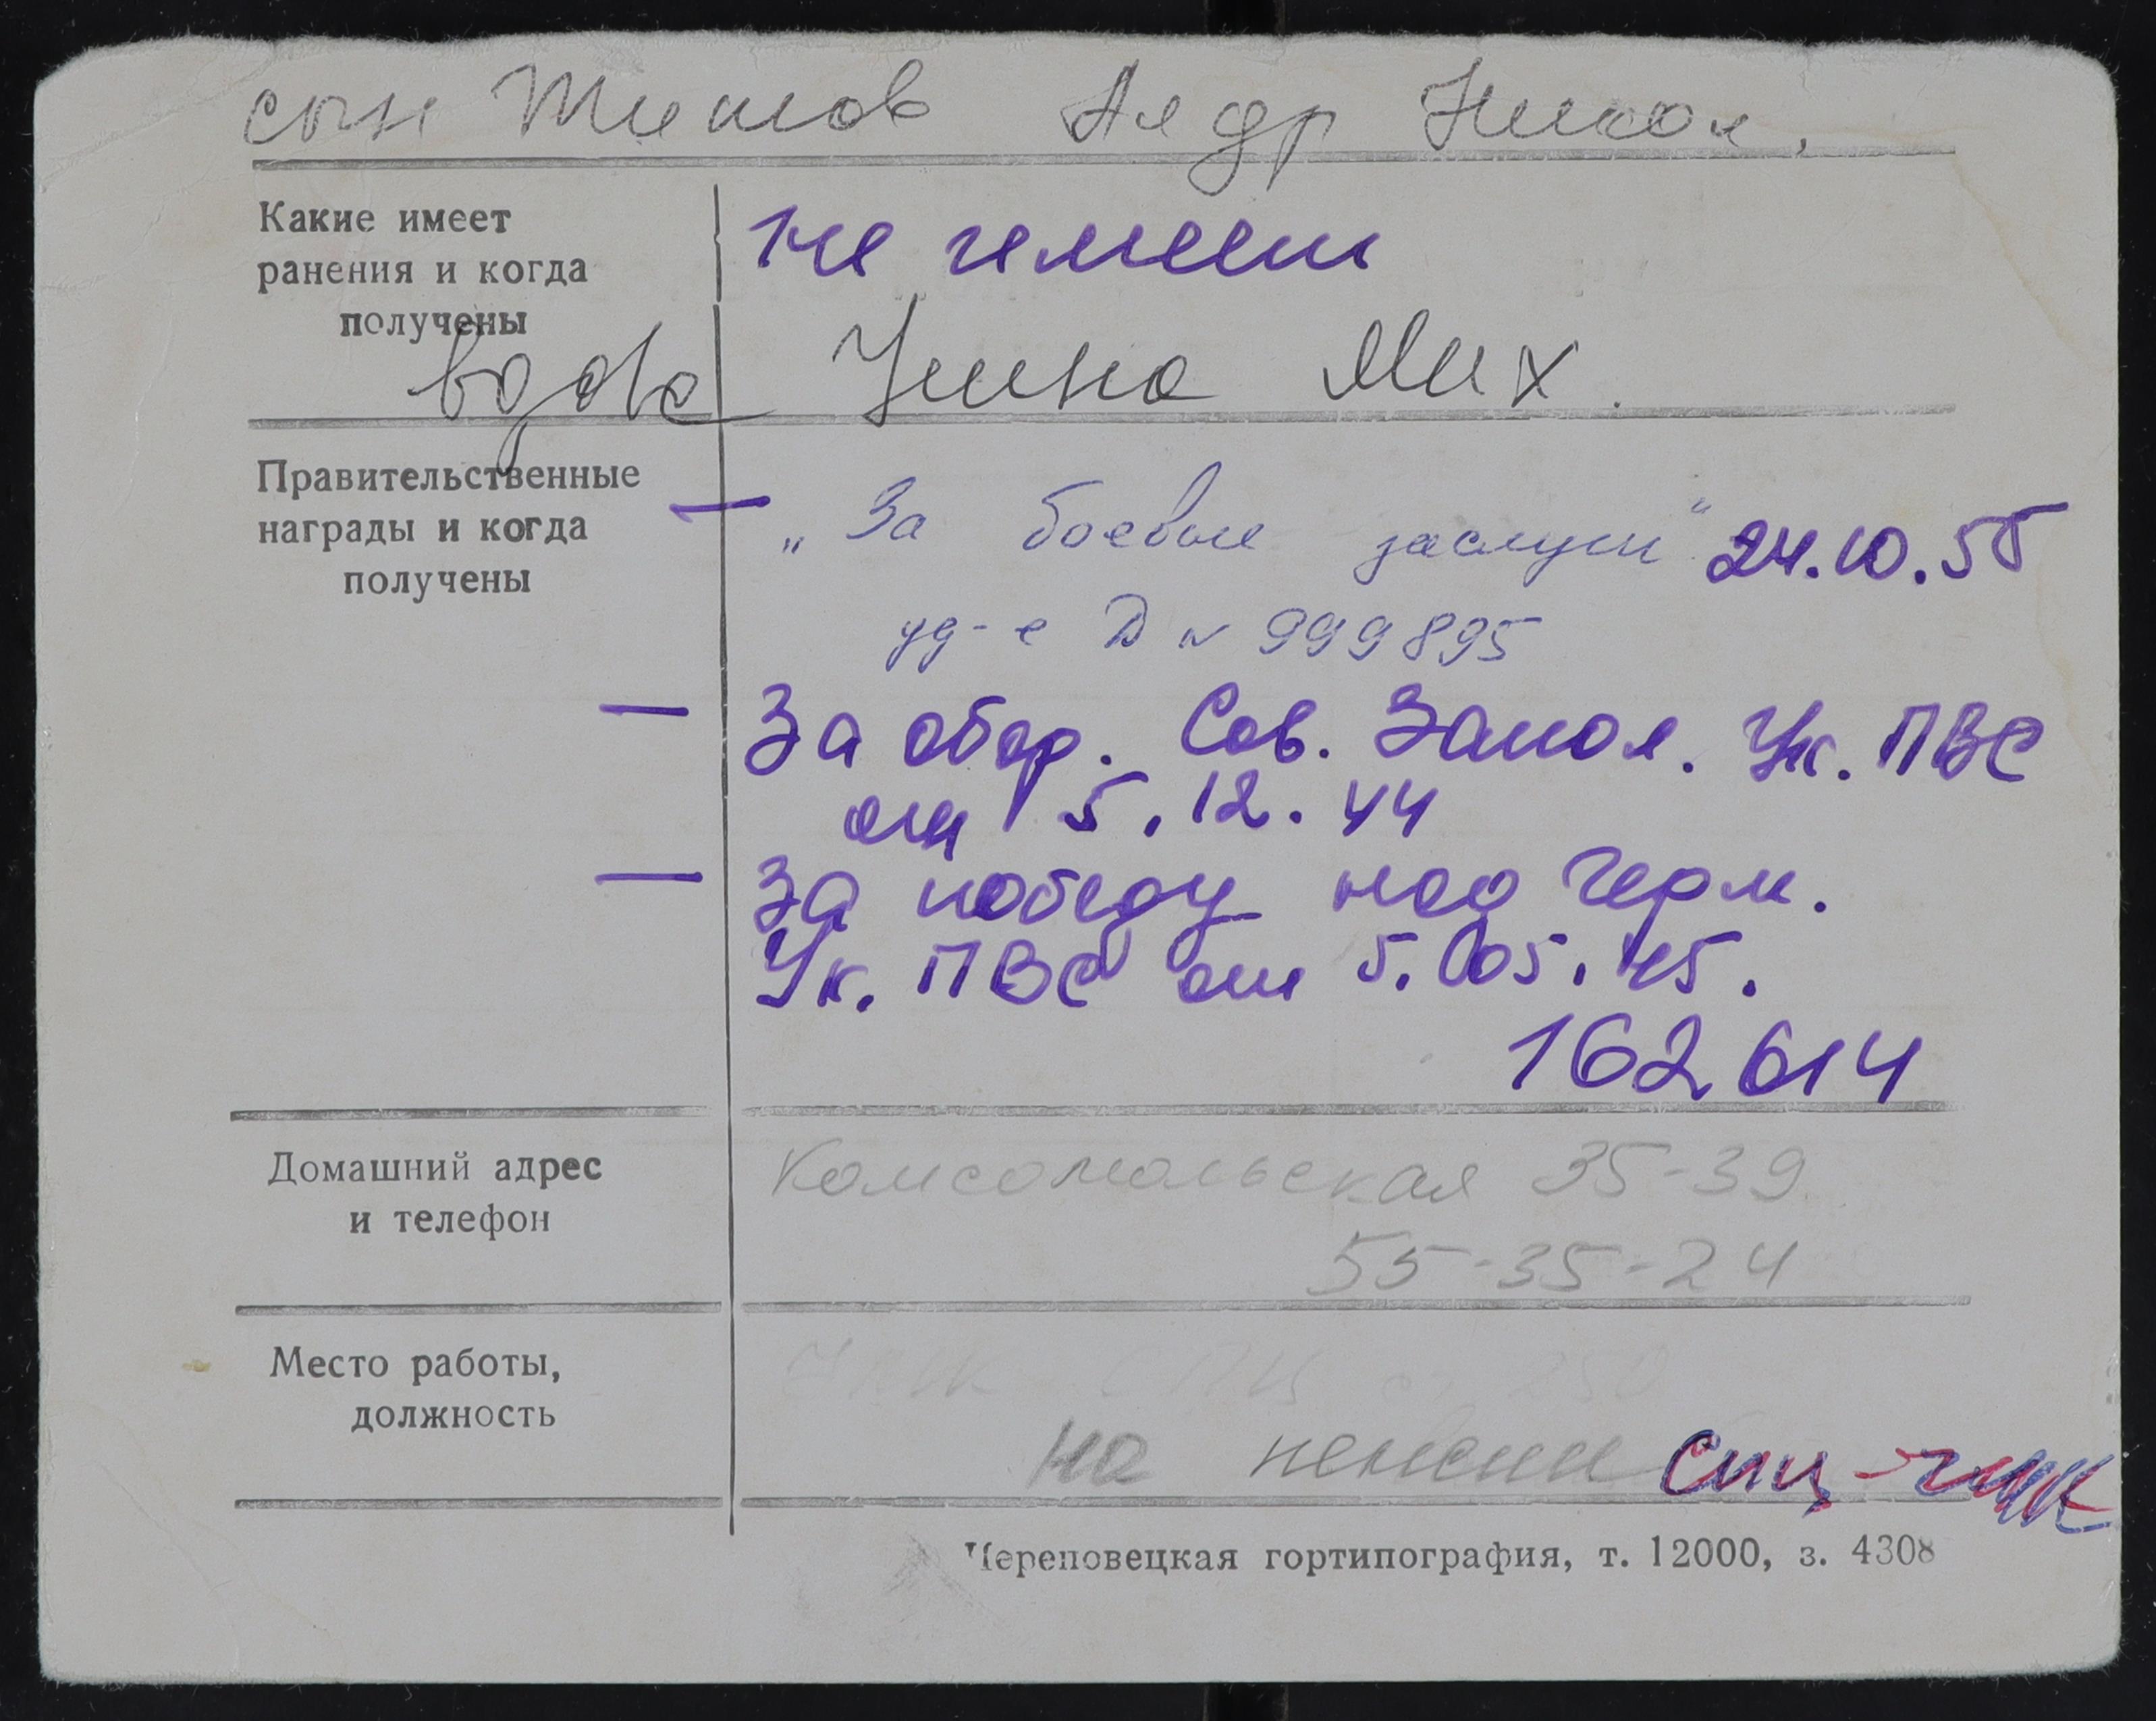 сын Титов Алдр Никол.
Какие имеет
ранения и когда
получены
не имеет
вдова Нина Мих.
Правительственные
награды и когда
получены
— „За боевые заслуги" 24.10.55
уд-е D № 999895
— За обор. Сов. Запол. Ук. ПВС
от 5.12.44
— За победу над Герм.
Ук. ПВС от 5.05.45.
162614
Домашний адрес
и телефон
Комсомольская 35-39
55-35-24
Место работы,
должность
на пенсии СПЦ - ЧМК
Череповецкая гортипография, т. 12000, з. 4308